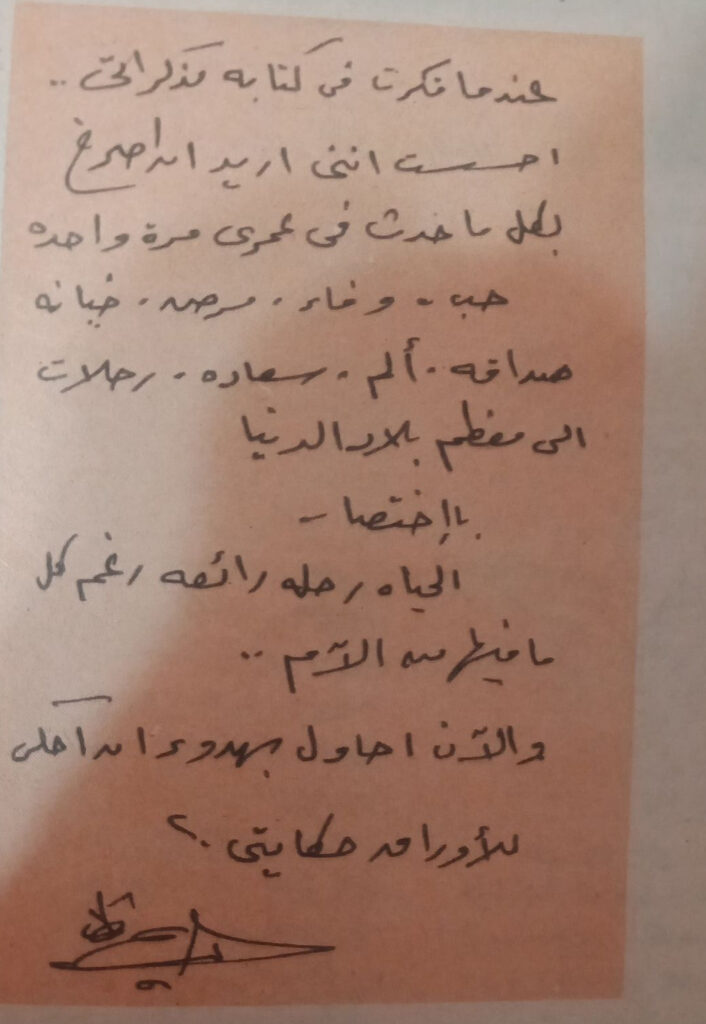 عندما فكرت فى كتابه مذكراتى ..
احسست اننى اريد ان اصرخ
بكل ما حدث فى عمرى مرة واحده
حب . وفاء . مرض . خيانه
صداقه . ألم . سعاده . رحلات
الى معظم بلاد الدنيا
بإختصار
الحياه رحله رائعه رغم كل
ما فيها من الآم ..
والآن احاول بهدوء ان أحكى
للأوراق حكايتى .